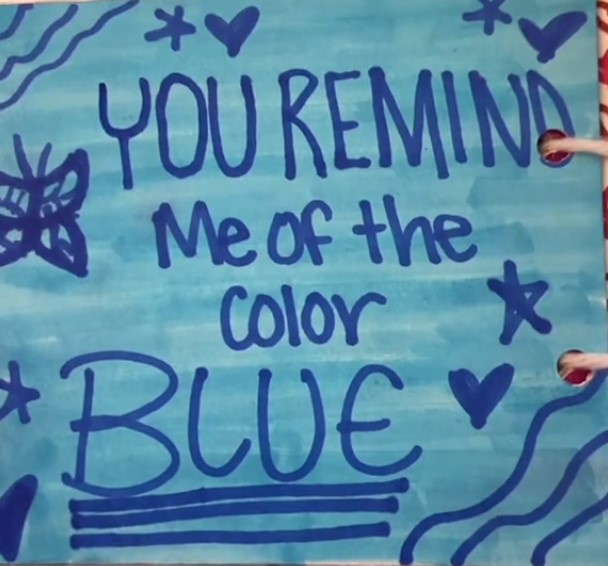 YOU REMIND
Me of the
color
BLUE